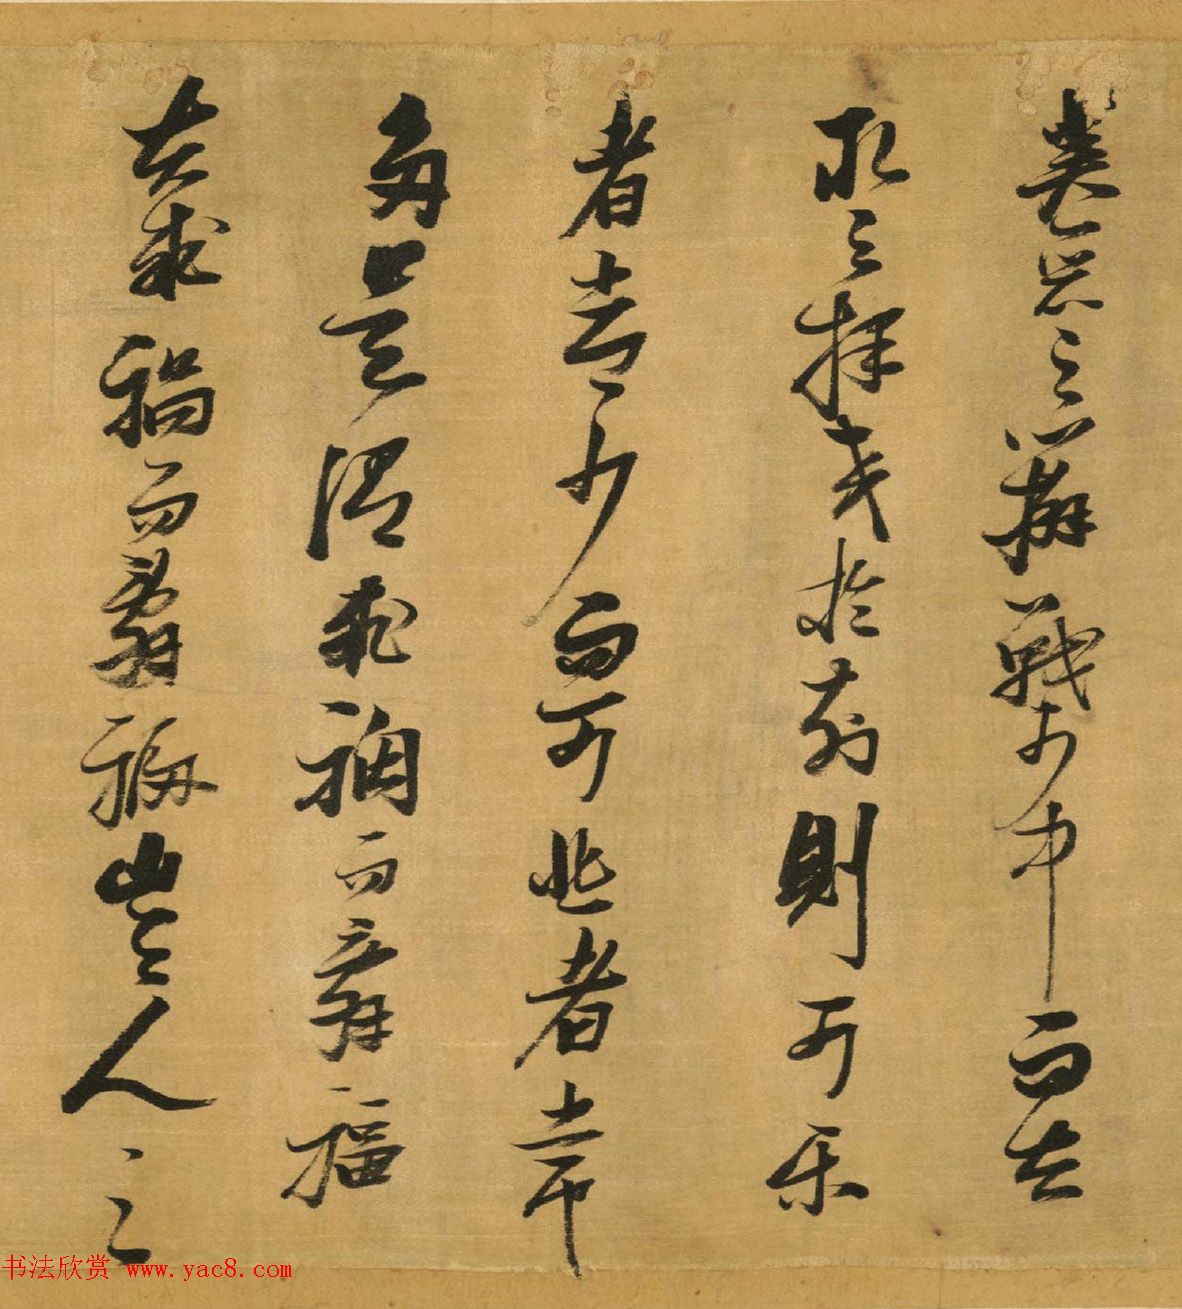 美惡之辨戰乎中而去
取之擇交於前則可樂
者常少而可悲者常
多是謂求禍而辭福
夫求禍而辭福豈人之
书法欣赏 www.yac8.com